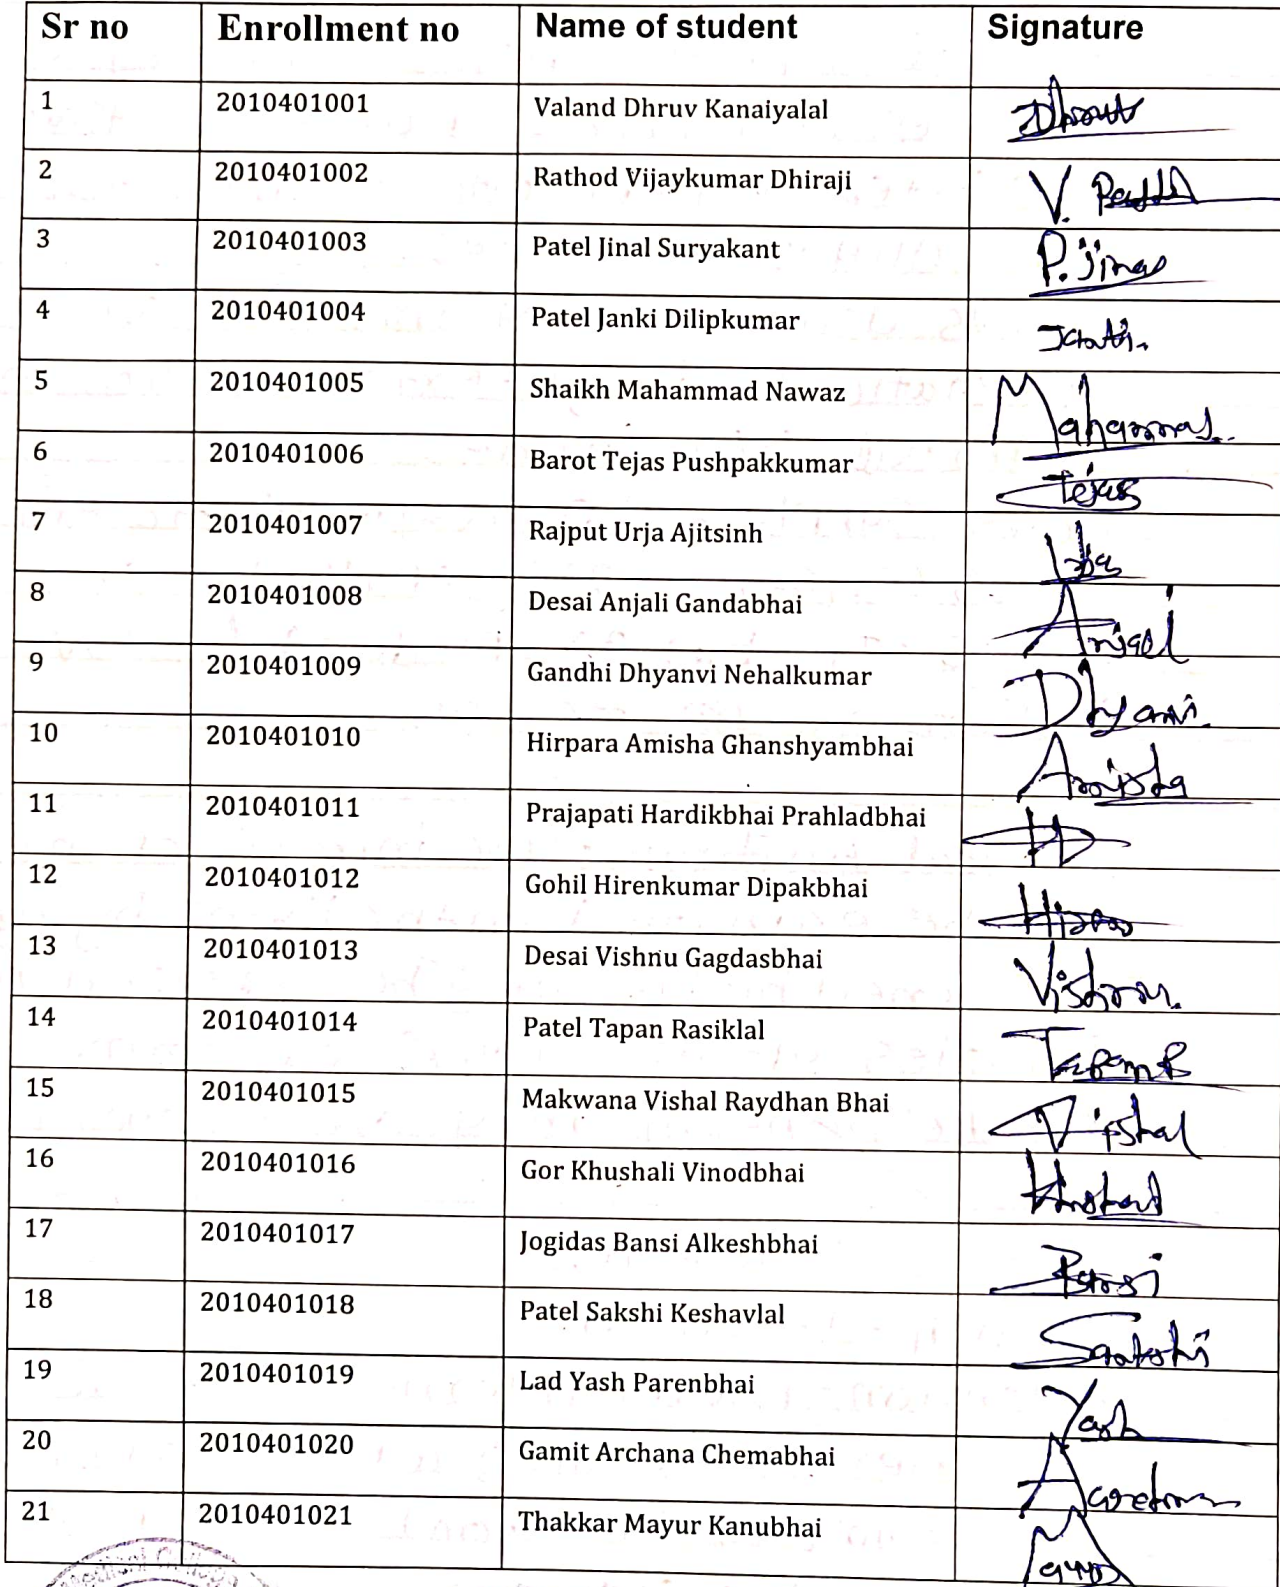 Sr no Enrollment no Name of student Signature
1 2010401001 Valand Dhruv Kanaiyalal Dhruv
2 2010401002 Rathod Vijaykumar Dhiraji V.
3 2010401003 Patel Jinal Suryakant P. Jinal
4 2010401004 Patel Janki Dilipkumar
5 2010401005 Shaikh Mahammad Nawaz Mahammad
6 2010401006 Barot Tejas Pushpakkumar Tejas
7 2010401007 Rajput Urja Ajitsinh
8 2010401008 Desai Anjali Gandabhai Anjali
9 2010401009 Gandhi Dhyanvi Nehalkumar Dhyanvi
10 2010401010 Hirpara Amisha Ghanshyambhai Amisha
11 2010401011 Prajapati Hardikbhai Prahladbhai HD
12 2010401012 Gohil Hirenkumar Dipakbhai Hiren
13 2010401013 Desai Vishnu Gagdasbhai Vishnu.
14 2010401014 Patel Tapan Rasiklal Tapan R
15 2010401015 Makwana Vishal Raydhan Bhai Vishal
16 2010401016 Gor Khushali Vinodbhai
17 2010401017 Jogidas Bansi Alkeshbhai Bansi
18 2010401018 Patel Sakshi Keshavlal Sakshi
19 2010401019 Lad Yash Parenbhai Yash
20 2010401020 Gamit Archana Chemabhai Archana
21 2010401021 Thakkar Mayur Kanubhai